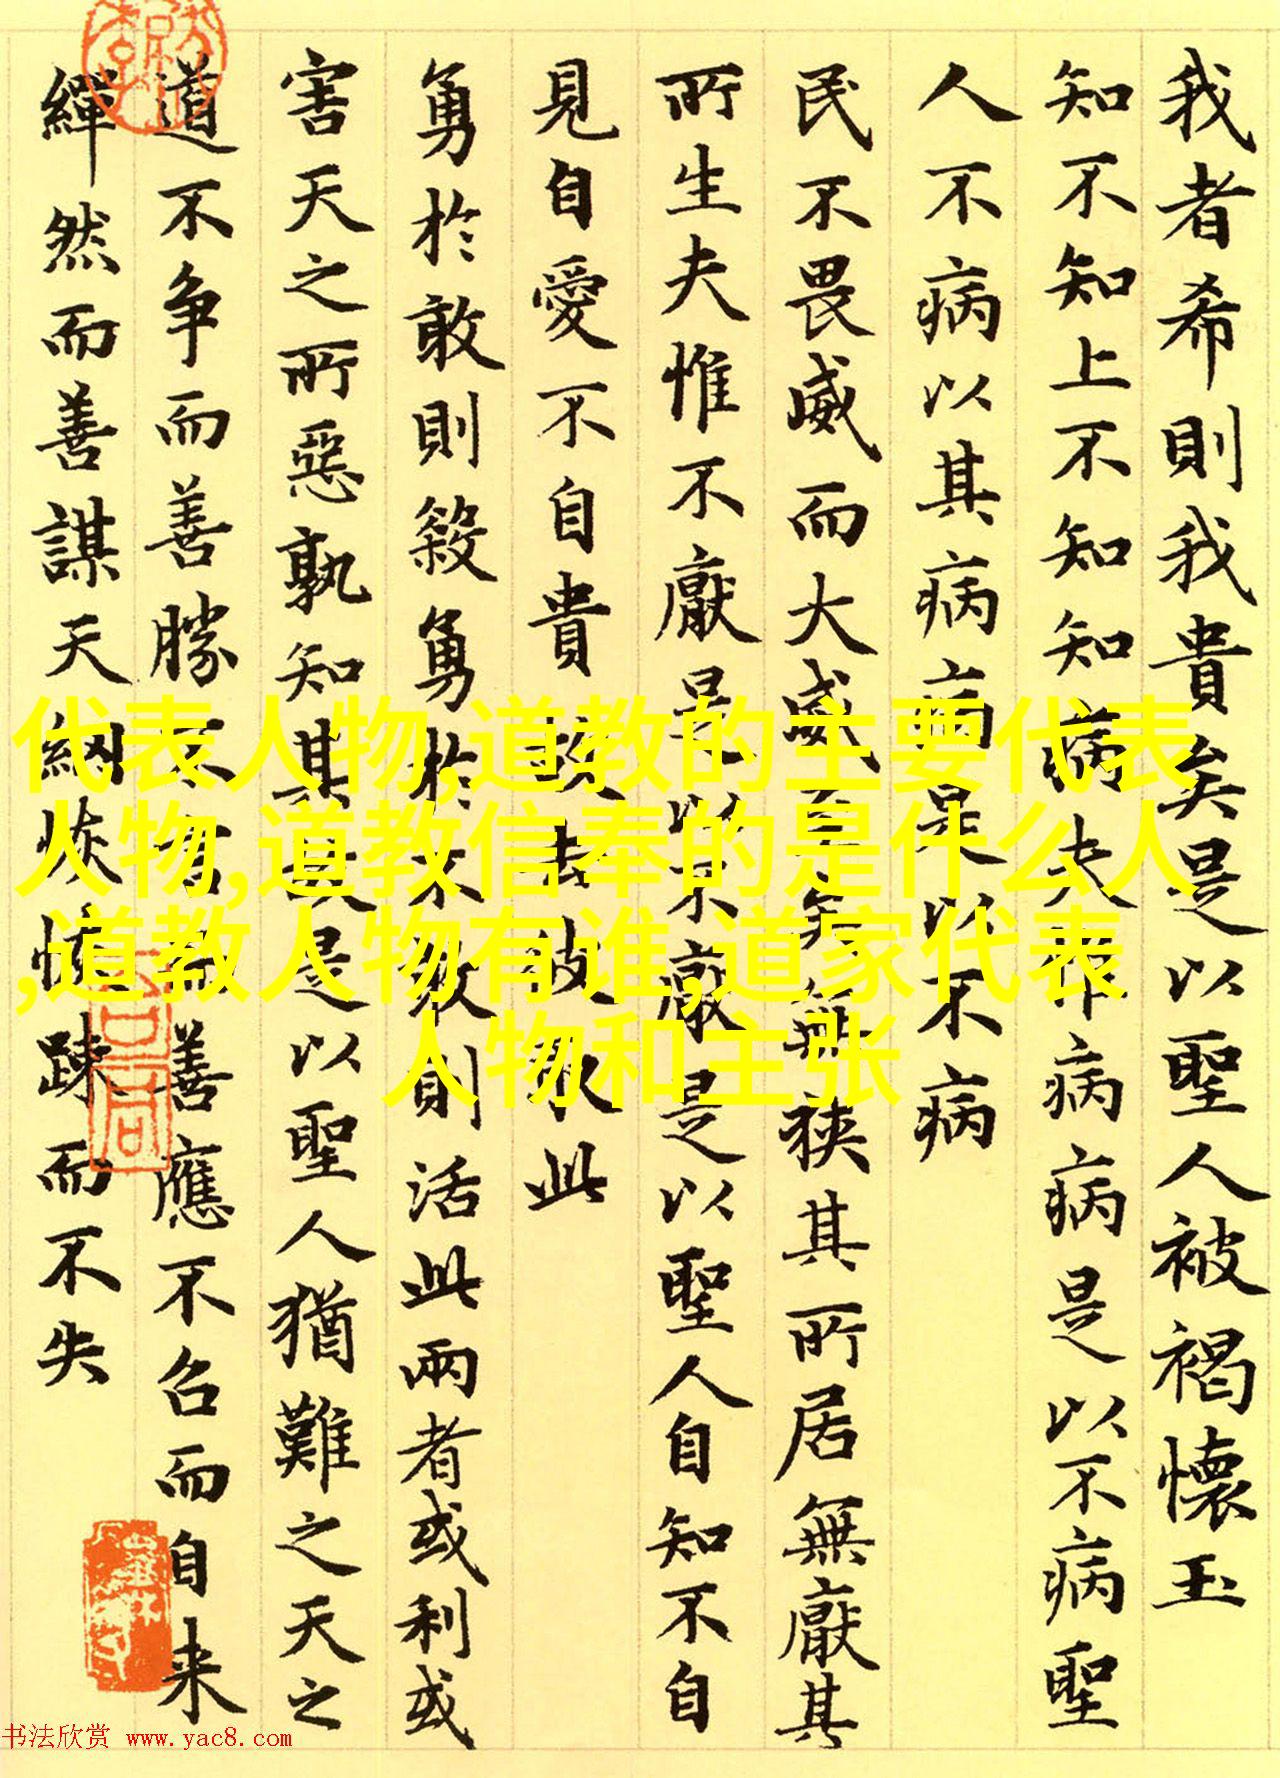 我者希則我貴矣是以聖人被褐懷玉
知不知上不知知病夫唯病病是以不病聖
人不病以其病病是以不病
民不畏威而大威至矣無狹其所居無厭其
所生夫惟不厭是以不厭是以聖人自知不自
見自愛不自貴故去彼取此
勇於敢則殺勇於不敢則活此兩者或利或
害天之所惡孰知其故是以聖人猶難之天之
道不争而善勝不言而善應不召而自来
繟然而善謀天網恢恢踈而不失
代表人物,道教的主要代表
人物,道教信奉的是什么人
,道教人物有谁,道家代表
人物和主张
书法欣赏 www.yac8.com